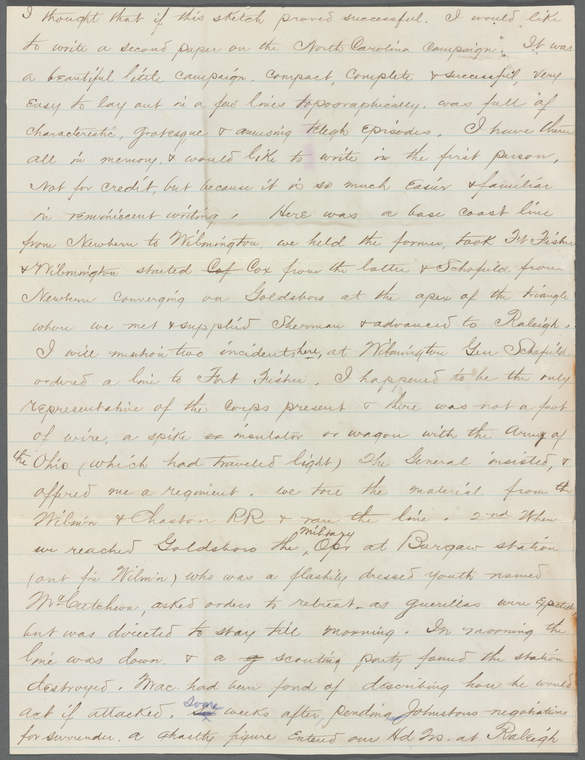 I thought that if this sketch proved successful. I would like
to write a second paper on the North Carolina Campaign. It was
a beautiful little campaign. Compact, Complete & successful, very
easy to lay out in a few lines topographically. was full of
characteristic, grotesque & amusing telegh Episodes. I have them
all in memory. & would like to write in the first person,
Not for credit, but because it is so much easier & familiar
in reminiscent writing. Here was a base coast line
from Newbern to Wilmington. we held the former, took Ft Fisher
& Wilmington started Cox from the latter & Schofield from
Newbern converging on Goldsboro at the apex of the triangle
where we met & supplied Sherman & advanced to Raleigh.
I will mention two incidents here, at Wilmington Gen Schofield
ordered a line to Fort Fisher. I happened to be the only
representative of the Corps present & there was not a foot
of wire, a spike insulator or wagon with the Army of
the Ohio (which had traveled light) The General insisted, &
offered me a regiment. we tore the material from the
Wilm'n & Chaston RR & ran the line. 2nd When
we reached Goldsboro the Military Opr at Burgaw station
(ont fr Wilm'n) who was a flashily dressed youth named
McCutcheon, asked orders to retreat as guerillas were Expected
but was directed to stay till morning. In morning the
line was down & a scouting party found the station
destroyed. Mac had been fond of describing how he would
act if attacked. Some weeks after, pending Johnstons negotiations
for surrender. a ghastly figure entered our Hd Qrs. at Raleigh